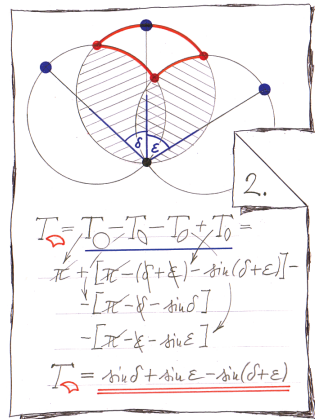 δ ε
2.
T = T - T - T + T =
π + [π - (δ + ε) - sin(δ+ε)] -
- [π - δ - sinδ]
- [π - ε - sinε]
T = sinδ + sinε - sin(δ+ε)